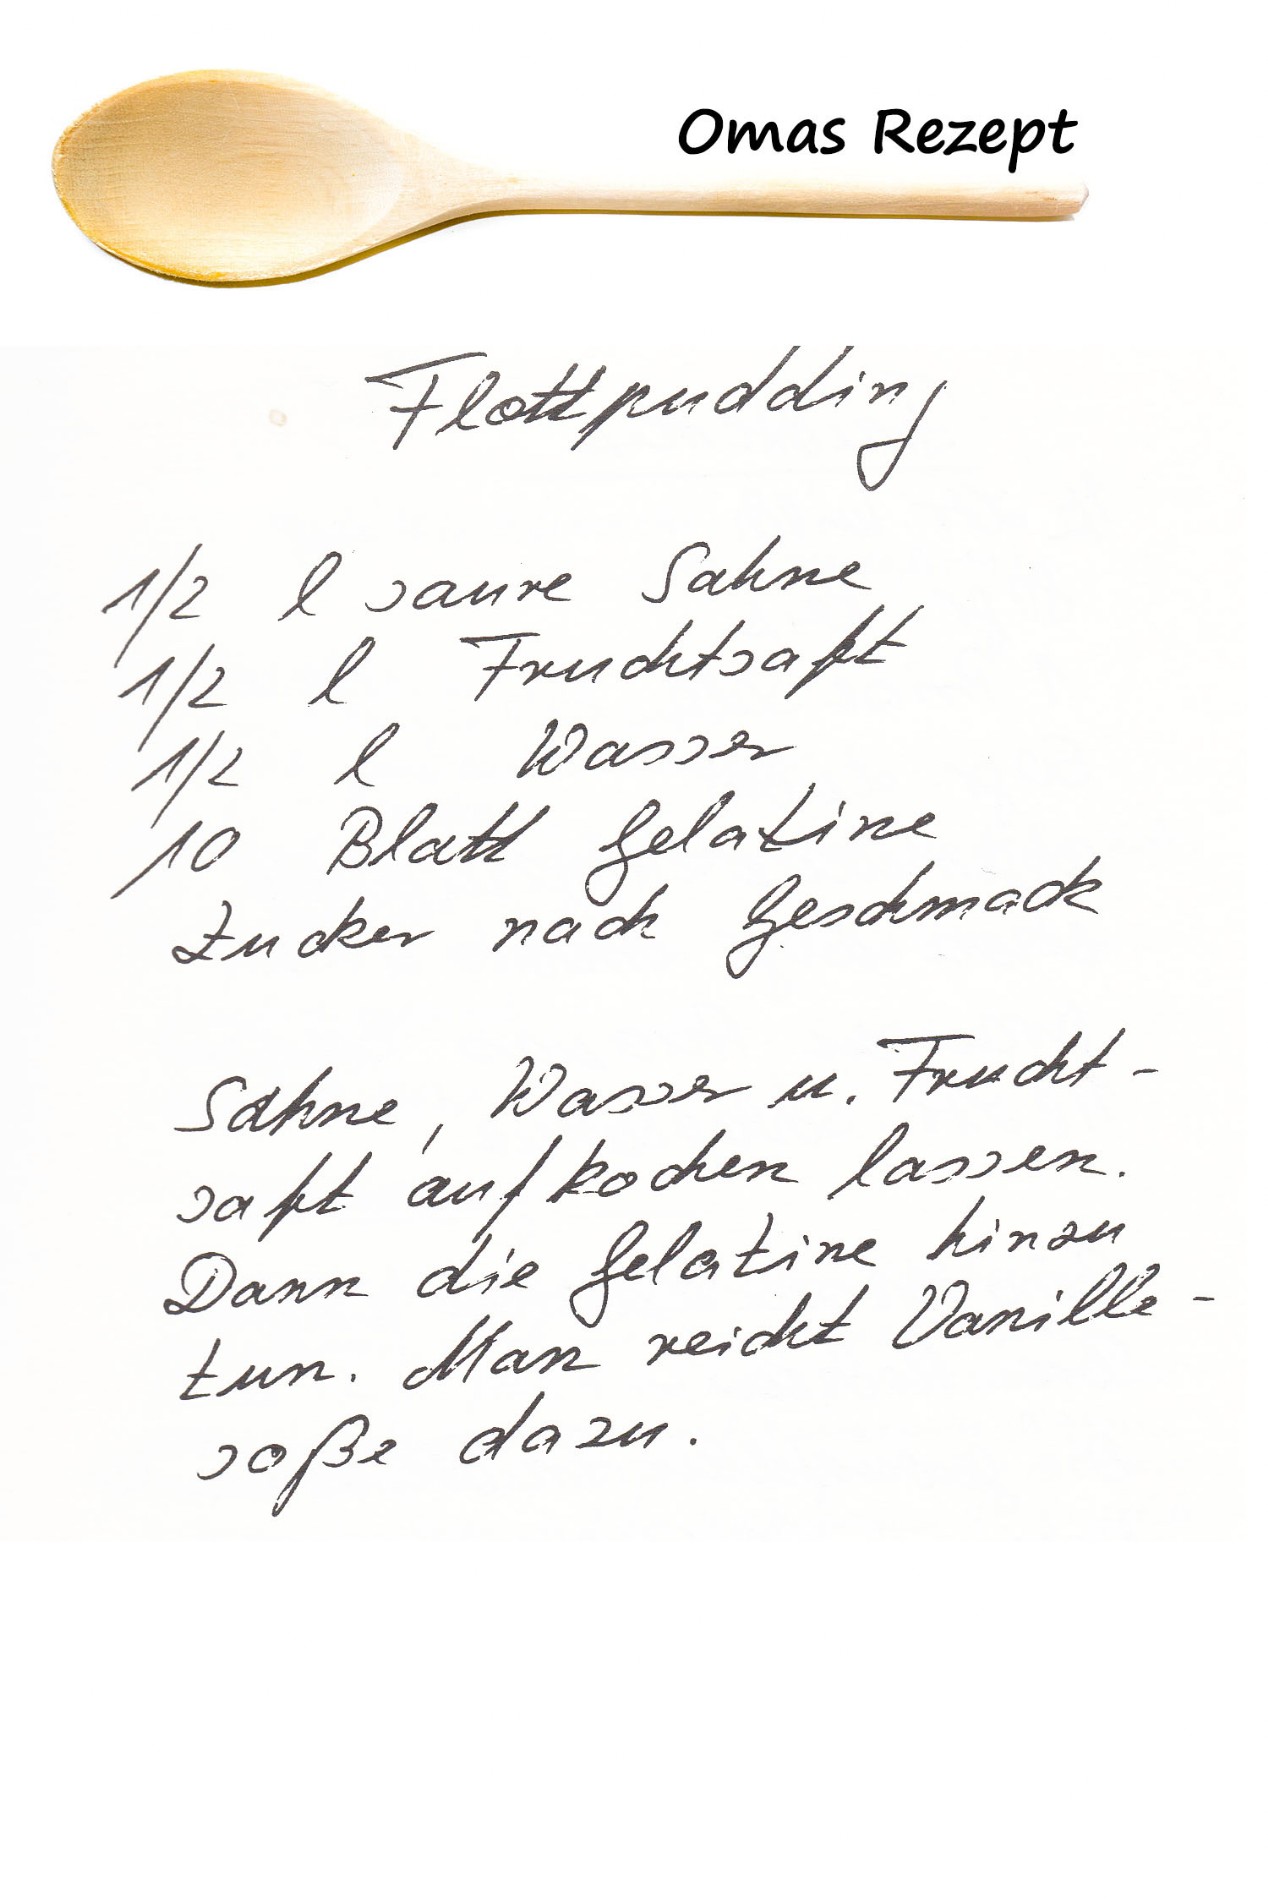 Omas Rezept
Flottpudding
1/2 l saure Sahne
1/2 l Fruchtsaft
1/2 l Wasser
10 Blatt Gelatine
Zucker nach Geschmack
Sahne, Wasser u. Frucht-
saft aufkochen lassen.
Dann die Gelatine hinzu
tun. Man reicht Vanille-
soße dazu.